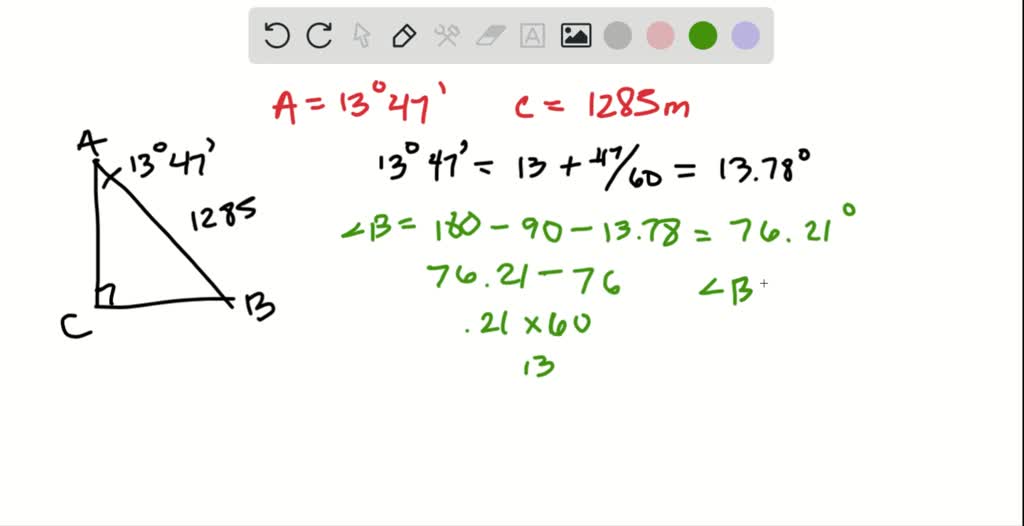 A = 13° 47' c = 1285m
A
13° 47'
1285
C
B
13° 47' = 13 + 47/60 = 13.78°
∠B = 180 - 90 - 13.78 = 76.21°
76.21 - 76
∠B
.21 x 60
13